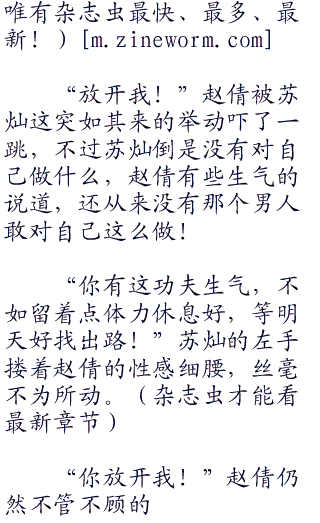 唯有杂志虫最快、最多、最
新！）[m.zineworm.com]
“放开我！”赵倩被苏
灿这突如其来的举动吓了一
跳，不过苏灿倒是没有对自
己做什么，赵倩有些生气的
说道，还从来没有那个男人
敢对自己这么做！
“你有这功夫生气，不
如留着点体力休息好，等明
天好找出路！”苏灿的左手
搂着赵倩的性感细腰，丝毫
不为所动。（杂志虫才能看
最新章节）
“你放开我！”赵倩仍
然不管不顾的